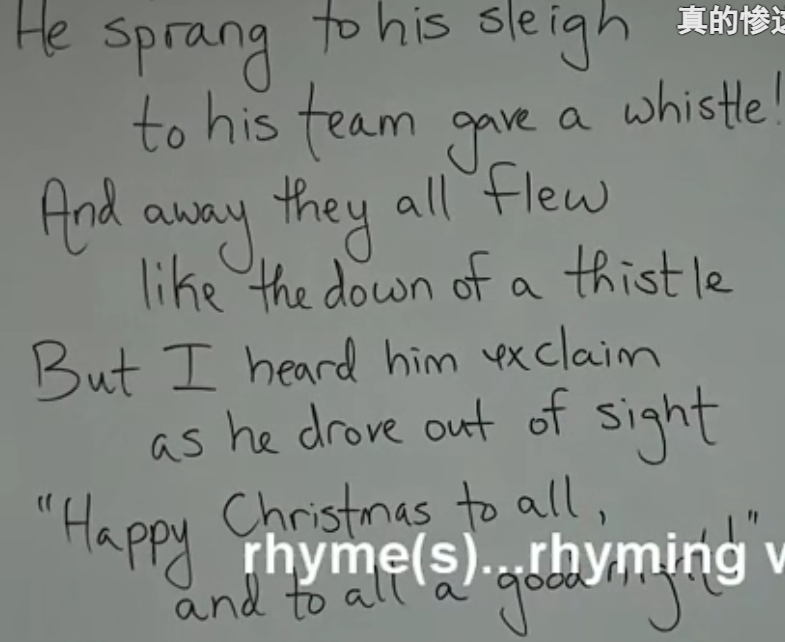 He sprang to his sleigh
真的惨
to his team gave a whistle!
And away they all flew
like the down of a thistle
But I heard him exclaim
as he drove out of sight
"Happy Christmas to all,
rhyme(s)...rhyming
and to all a good night!"